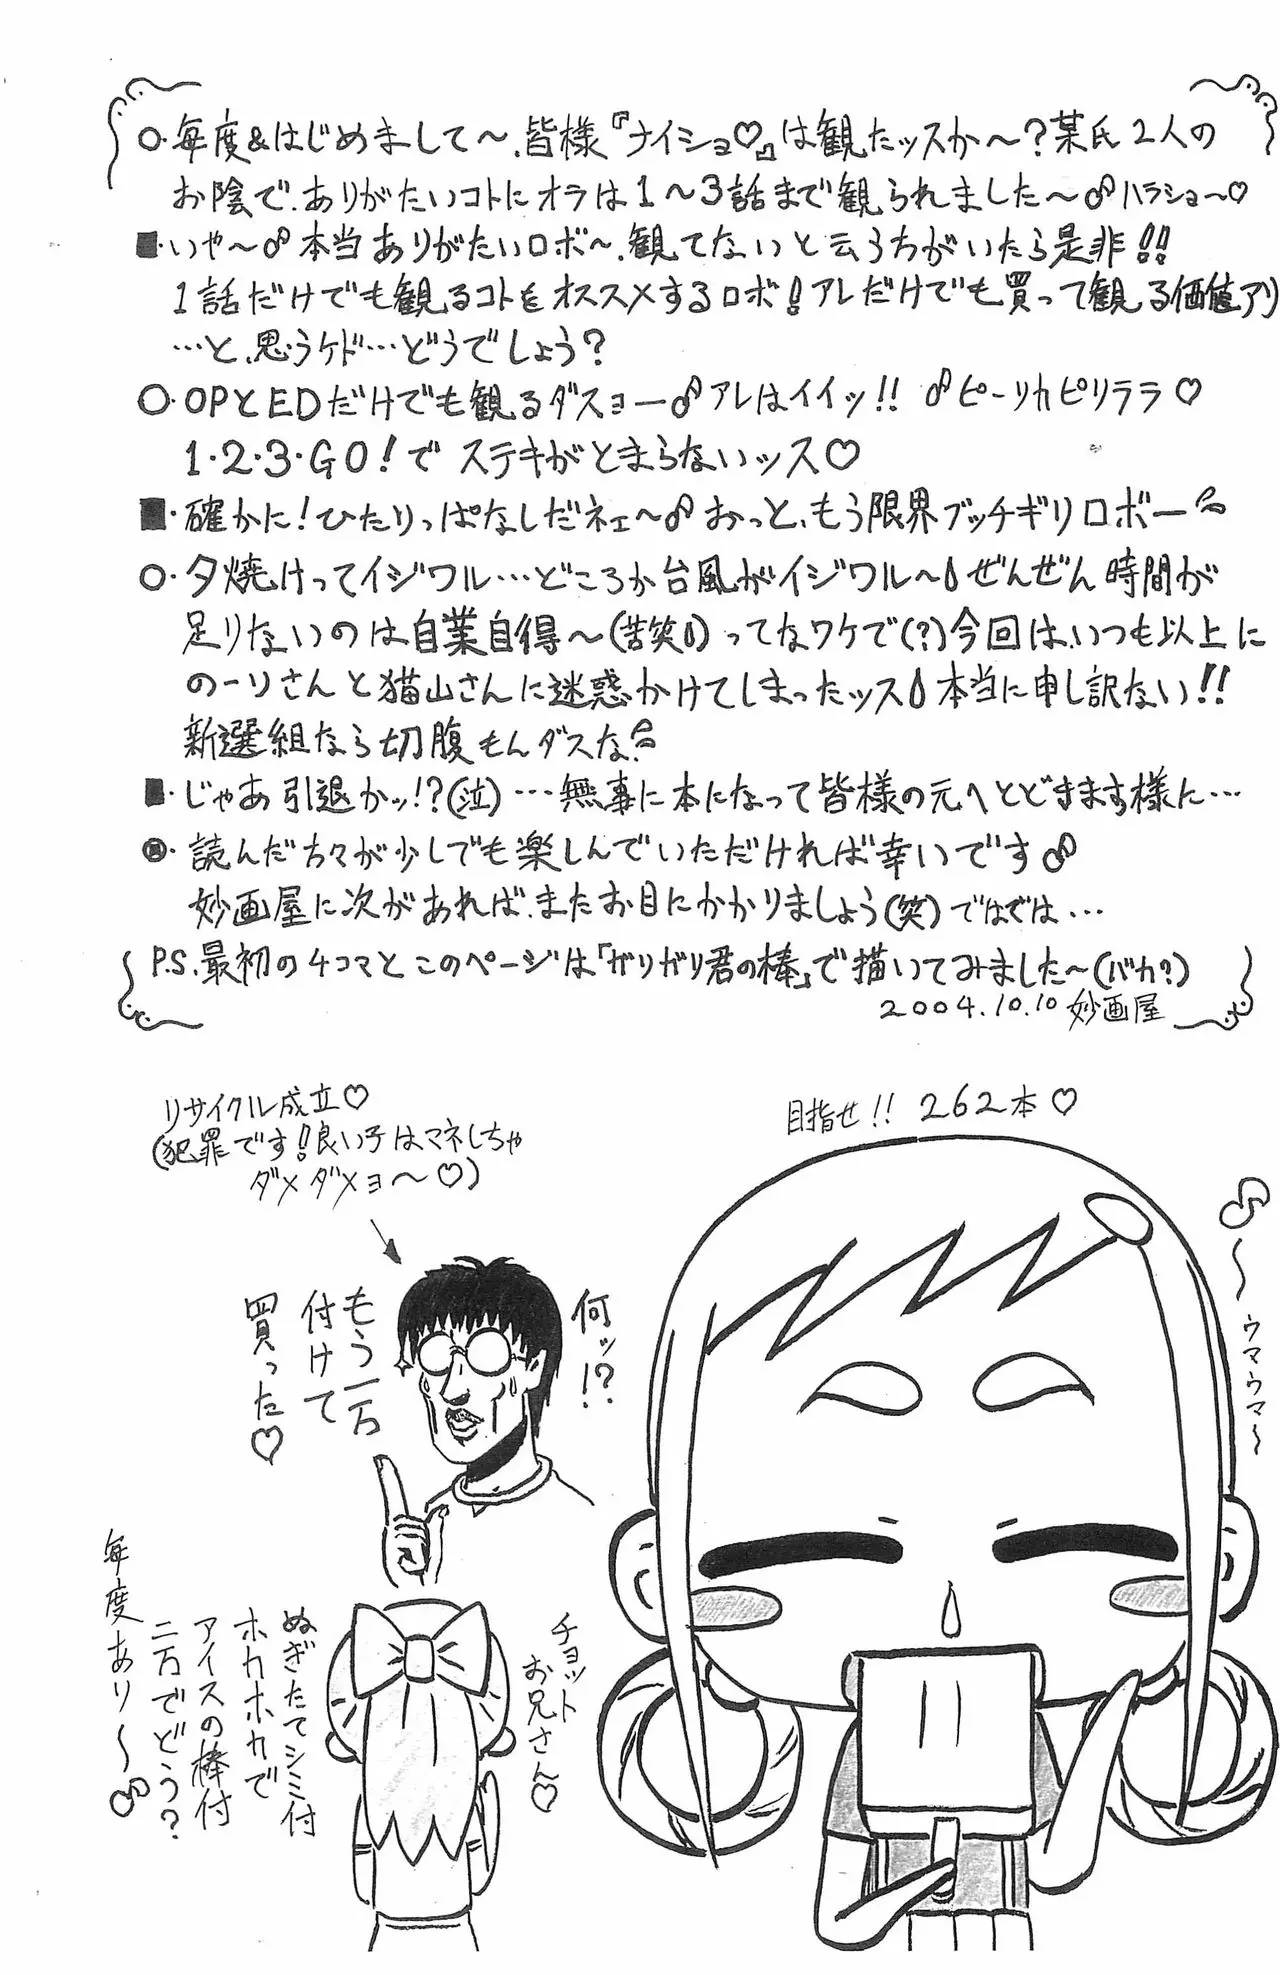 ○・毎度&はじめまして〜、皆様『ナイショ♡』は観たッスか〜?某氏2人の
お陰で、ありがたいコトにオラは1〜3話まで観られました〜♂ハラショ〜♡
■・いや〜♂本当ありがたいロボ〜、観てないと云う方がいたら是非!!
1話だけでも観るコトをオススメするロボ!アレだけでも買って観る価値アリ
…と、思うケド…どうでしょう?
○・OPとEDだけでも観るダスョー♂アレはイイッ!! ♂ピーリカピリララ♡
1・2・3・GO!でステキがとまらないッス♡
■・確かに!ひたりっぱなしだネェ〜♂おっと、もう限界ブッチギリロボー
○・夕焼けってイジワル…どころか台風がイジワル〜ぜんぜん時間が
足りないのは自業自得〜(苦笑)ってなワケで(?)今回は、いつも以上に
のーりさんと猫山さんに迷惑かけてしまったッス本当に申し訳ない!!
新選組なら切腹もんダスな
■・じゃあ引退かッ!?(泣)…無事に本になって皆様の元へとどきます様に…
◎・読んだ方々が少しでも楽しんでいただければ幸いです♂
妙画屋に次があれば、またお目にかかりましょう(笑)ではでは…
P.S.最初の4コマとこのページは「ガリガリ君の棒」で描いてみました〜(バカ?)
2004.10.10 妙画屋
目指せ!!262本♡
〜ウマウマ〜